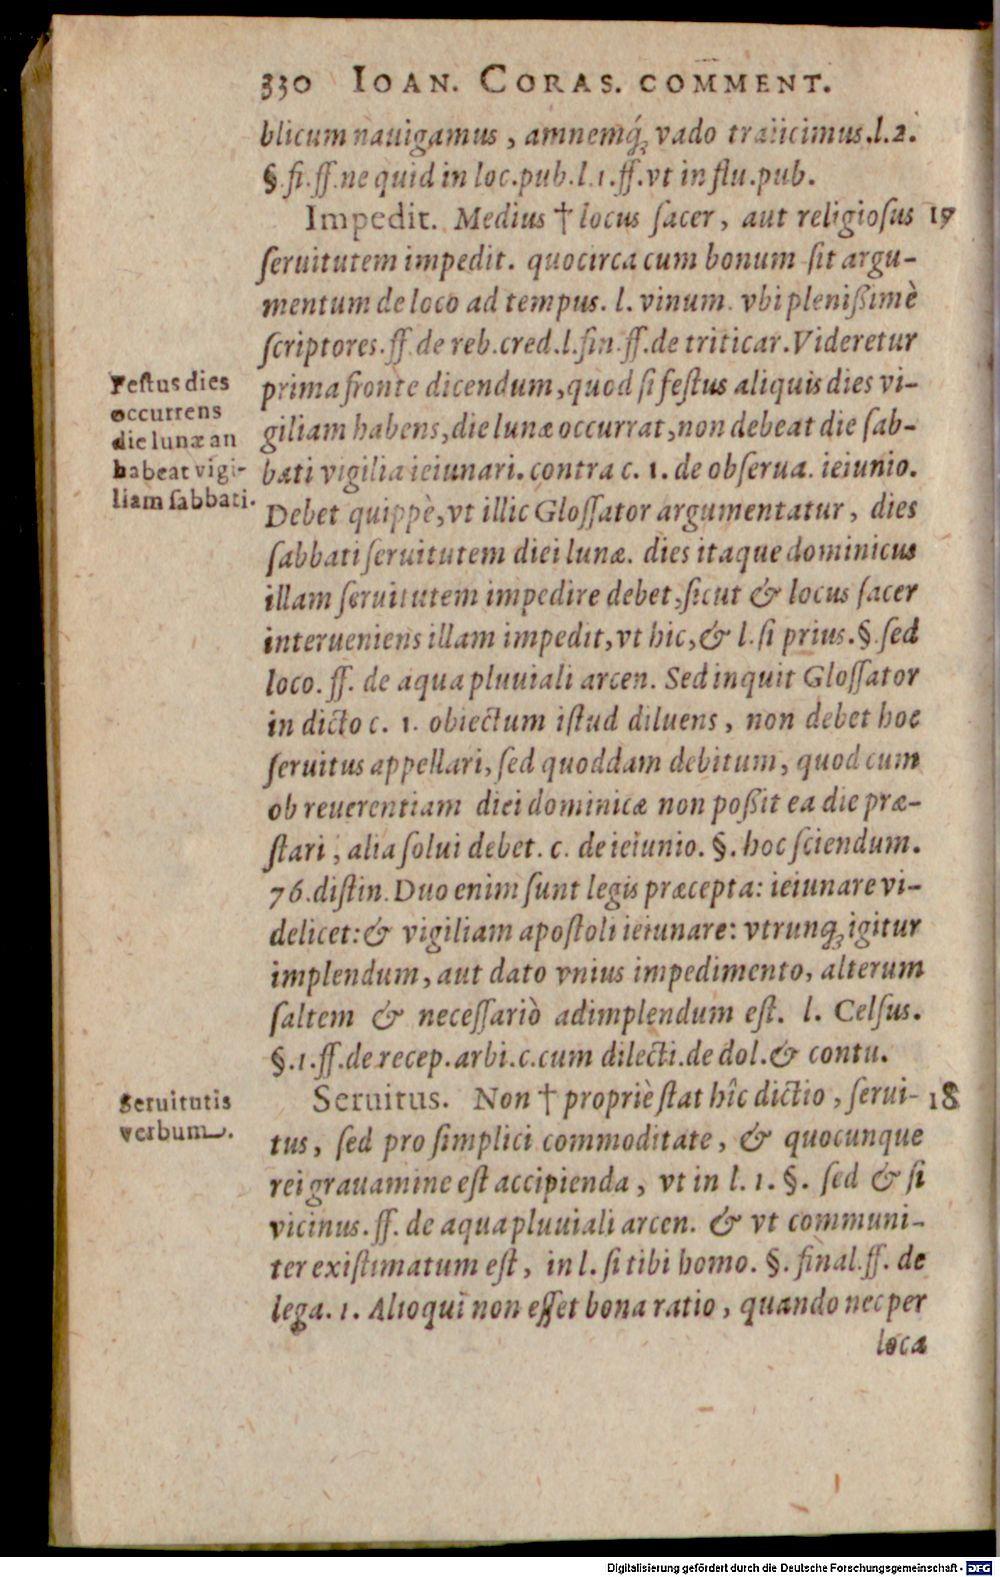 330 IOAN. CORAS. COMMENT.
blicum nauigamus, amnemq́; vado traiicimus. l. 2.
§. fi. ff. ne quid in loc. pub. l. 1. ff. vt in flu. pub.
Impedit. Medius † locus ſacer, aut religioſus 17
ſeruitutem impedit. quocirca cum bonum ſit argu-
mentum de loco ad tempus. l. vinum. vbi pleniſsimè
ſcriptores. ff. de reb. cred. l. fin. ff. de triticar. Videretur
prima fronte dicendum, quod ſi feſtus aliquis dies vi-
giliam habens, die lunæ occurrat, non debeat die ſab-
bati vigilia ieiunari. contra c. 1. de obſerua. ieiunio.
Debet quippè, vt illic Gloſſator argumentatur, dies
ſabbati ſeruitutem diei lunæ. dies itaque dominicus
illam ſeruitutem impedire debet, ſicut & locus ſacer
interueniens illam impedit, vt hic, & l. ſi prius. §. ſed
loco. ff. de aqua pluuiali arcen. Sed inquit Gloſſator
in dicto c. 1. obiectum iſtud diluens, non debet hoc
ſeruitus appellari, ſed quoddam debitum, quod cum
ob reuerentiam diei dominicæ non poſsit ea die præ-
ſtari, alia ſolui debet. c. de ieiunio. §. hoc ſciendum.
76. diſtin. Duo enim ſunt legis præcepta: ieiunare vi-
delicet: & vigiliam apoſtoli ieiunare: vtrunq; igitur
implendum, aut dato vnius impedimento, alterum
ſaltem & neceſſariò adimplendum eſt. l. Celſus.
§. 1. ff. de recep. arbi. c. cum dilecti. de dol. & contu.
Seruitus. Non † propriè ſtat hîc dictio, ſerui- 18
tus, ſed pro ſimplici commoditate, & quocunque
rei grauamine eſt accipienda, vt in l. 1. §. ſed & ſi
vicinus. ff. de aqua pluuiali arcen. & vt communi-
ter exiſtimatum eſt, in l. ſi tibi homo. §. final. ff. de
lega. 1. Alioqui non eſſet bona ratio, quando nec per
loca
Feſtus dies
occurrens
die lunæ an
habeat vigi-
liam ſabbati.
Seruitutis
verbum.
Digitalisierung gefördert durch die Deutsche Forschungsgemeinschaft - DFG